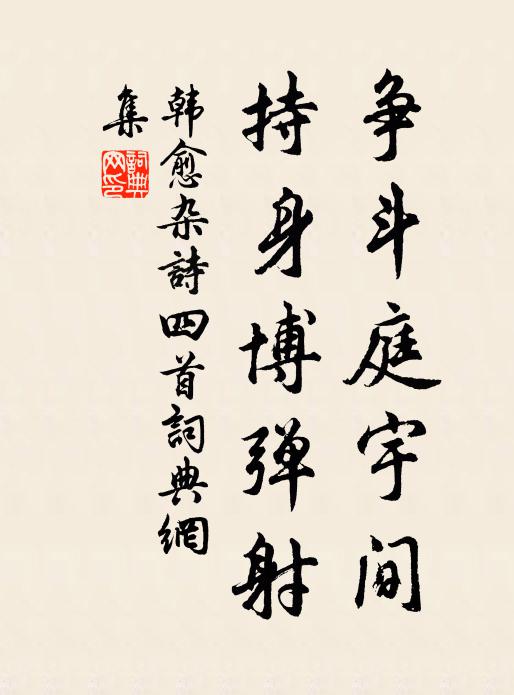 争斗庭宇间
持身博弹射
韩愈杂詩四首詞典網
集
詞典网印